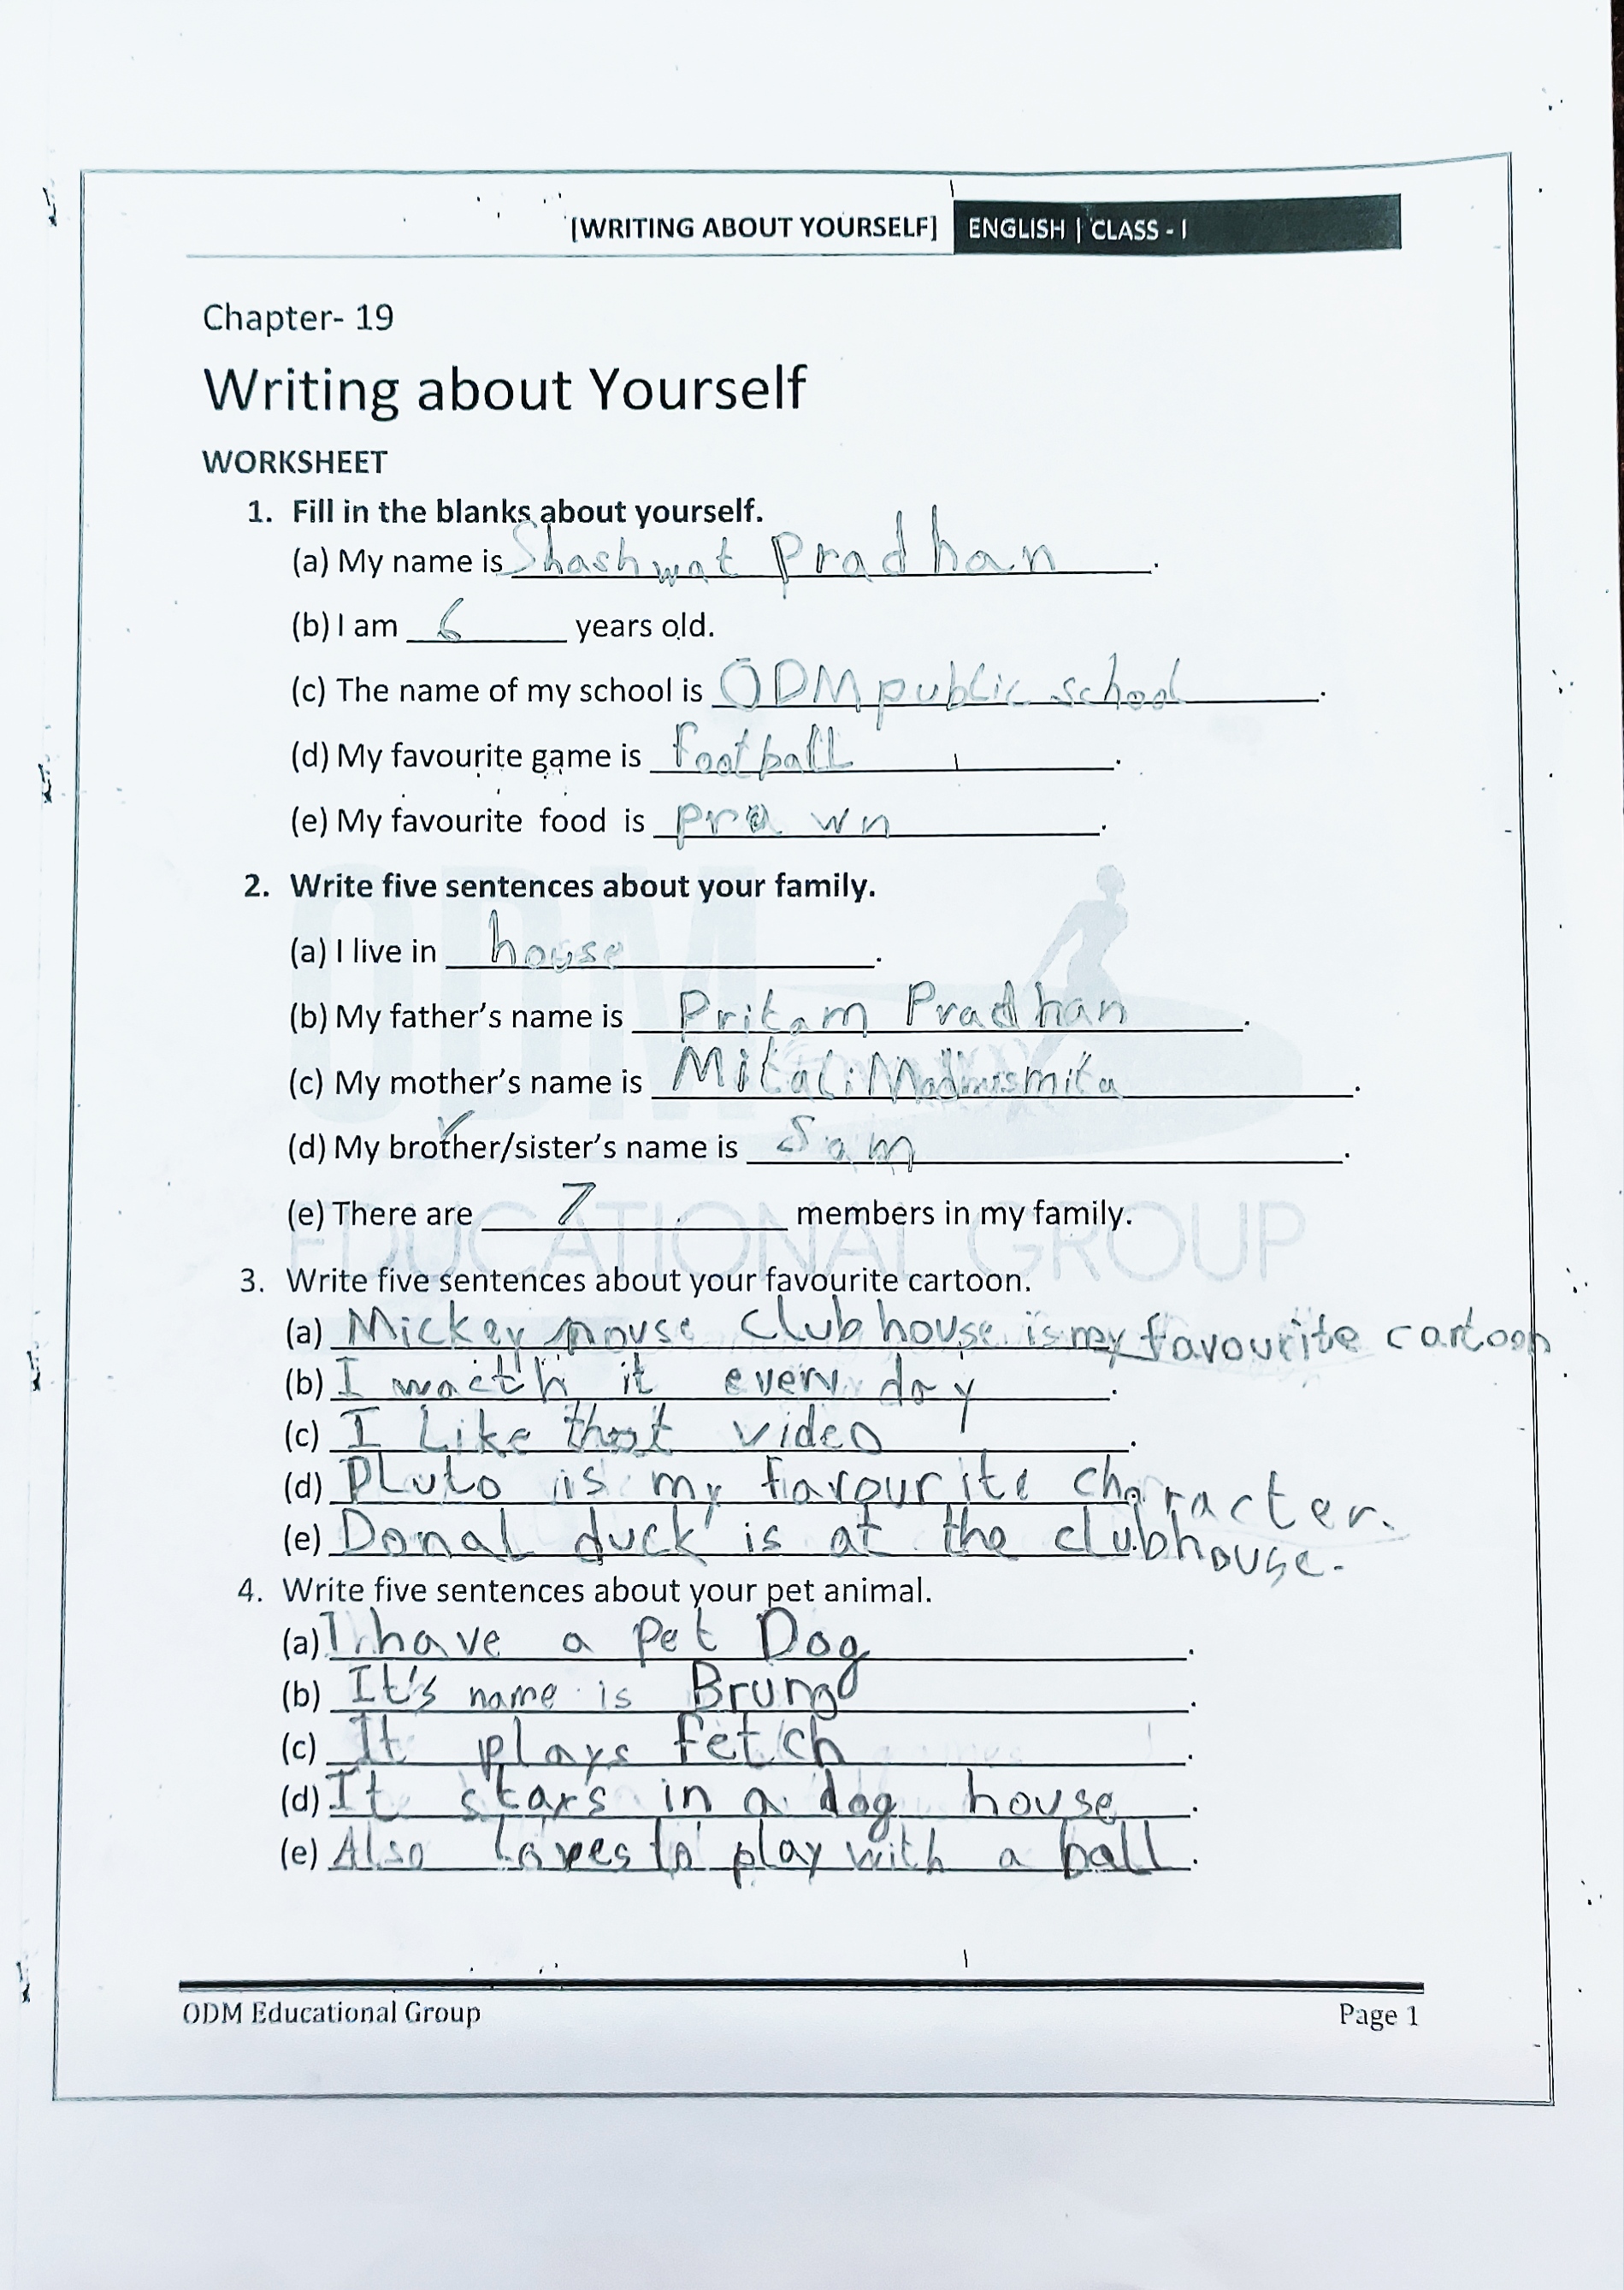 [WRITING ABOUT YOURSELF] ENGLISH | CLASS - I
Chapter- 19
Writing about Yourself
WORKSHEET
1. Fill in the blanks about yourself.
(a) My name is Shashwat Pradhan.
(b) I am 6 years old.
(c) The name of my school is ODM public school.
(d) My favourite game is football.
(e) My favourite food is prawn.
2. Write five sentences about your family.
(a) I live in house.
(b) My father's name is Pritam Pradhan.
(c) My mother's name is Mitali Madhusmita.
(d) My brother/sister's name is Sam.
(e) There are 7 members in my family.
3. Write five sentences about your favourite cartoon.
(a) Mickey mouse Clubhouse is my favourite cartoon
(b) I wacth it every day.
(c) I Like that video.
(d) Pluto is my favourite character.
(e) Donal duck is at the clubhouse.
4. Write five sentences about your pet animal.
(a) I have a pet Dog.
(b) It's name is Bruno.
(c) It plays fetch.
(d) It stays in a dog house.
(e) Also loves to play with a ball.
ODM Educational Group Page 1
ODM
EDUCATIONAL GROUP